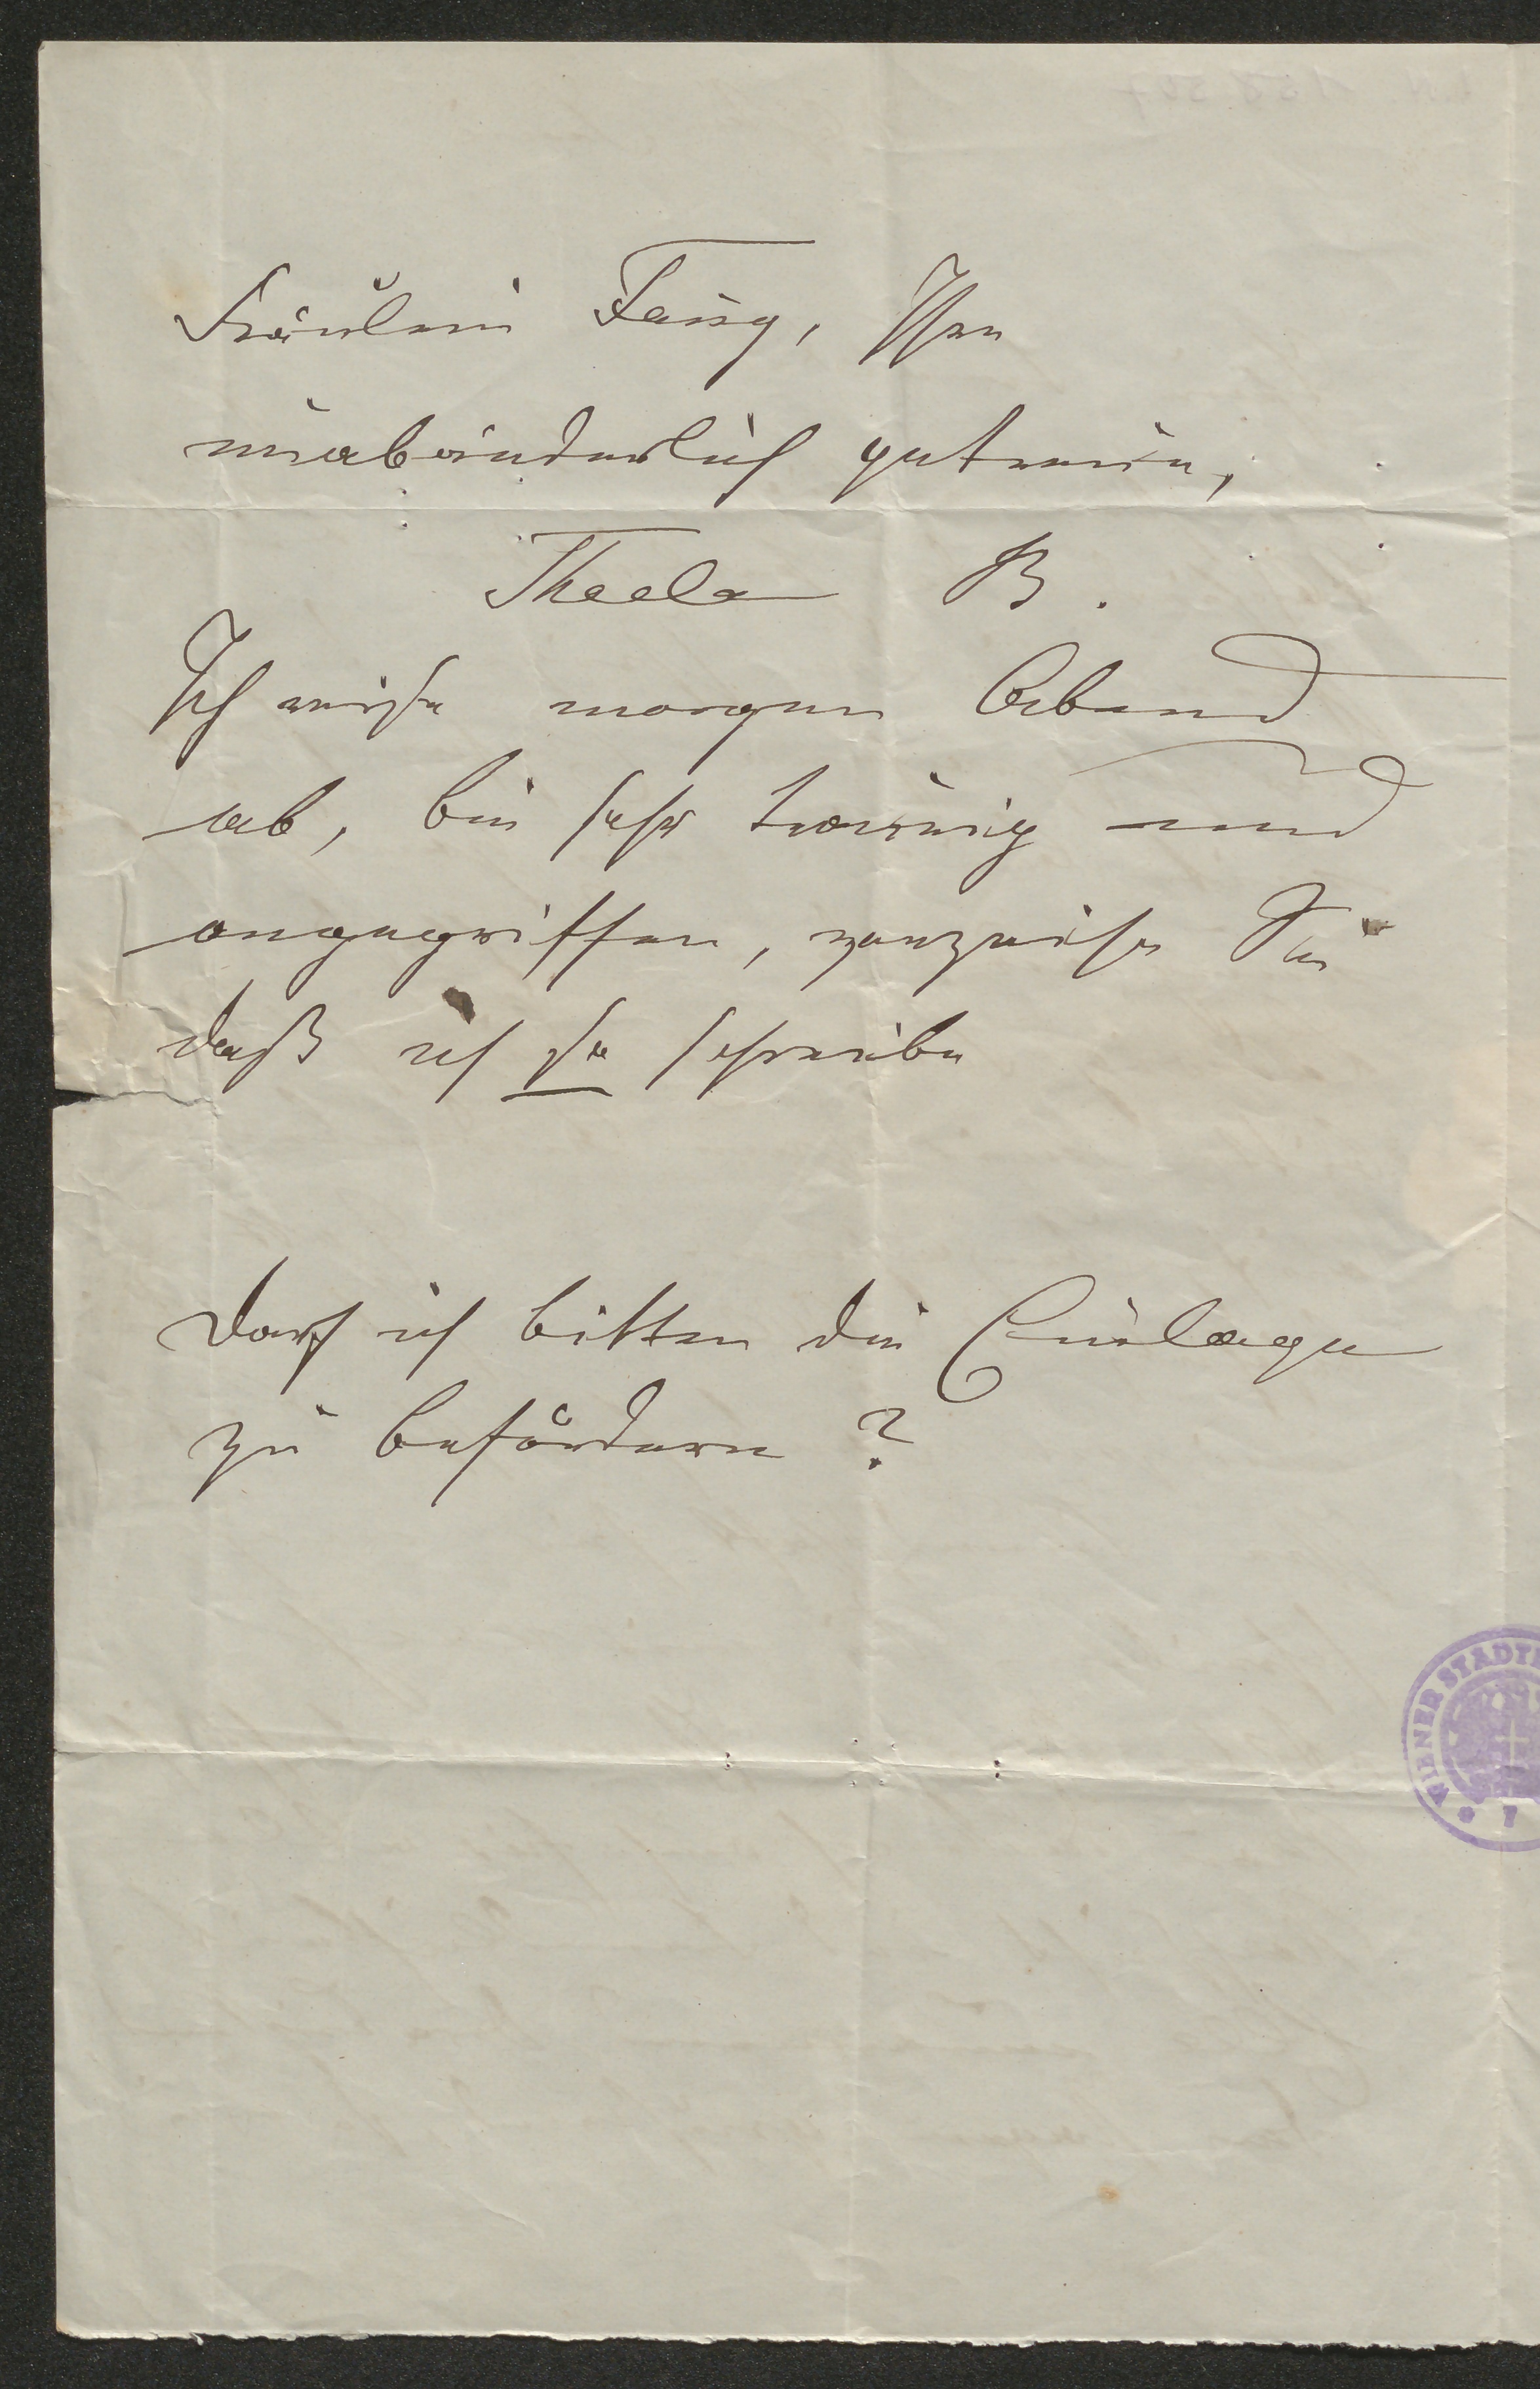 Fräulein Ihre
unabänderlich getreue,
Thecla B.
Ich reise morgen Abend
ab, bin sehr traurig und
angegriffen, verzeihen Sie
daß ich so schreibe
Darf ich bitten die Einlage
zu befördern ?
WIENER STADT